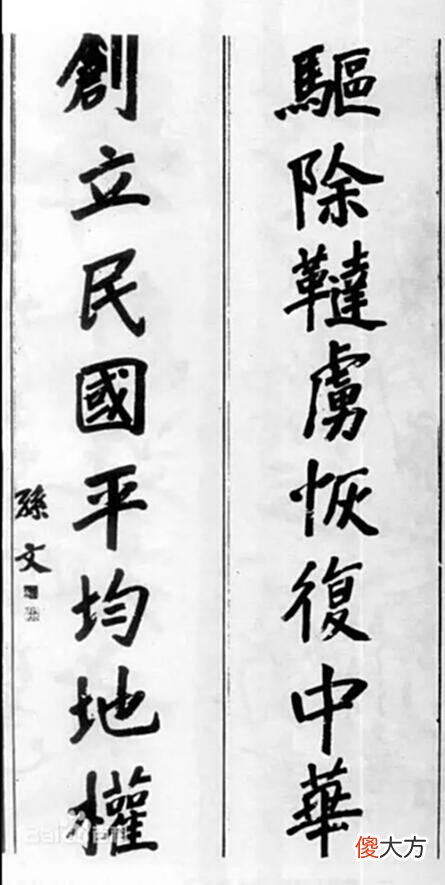 驅除韃虜恢復中華
創立民國平均地權
孫文
傻大方